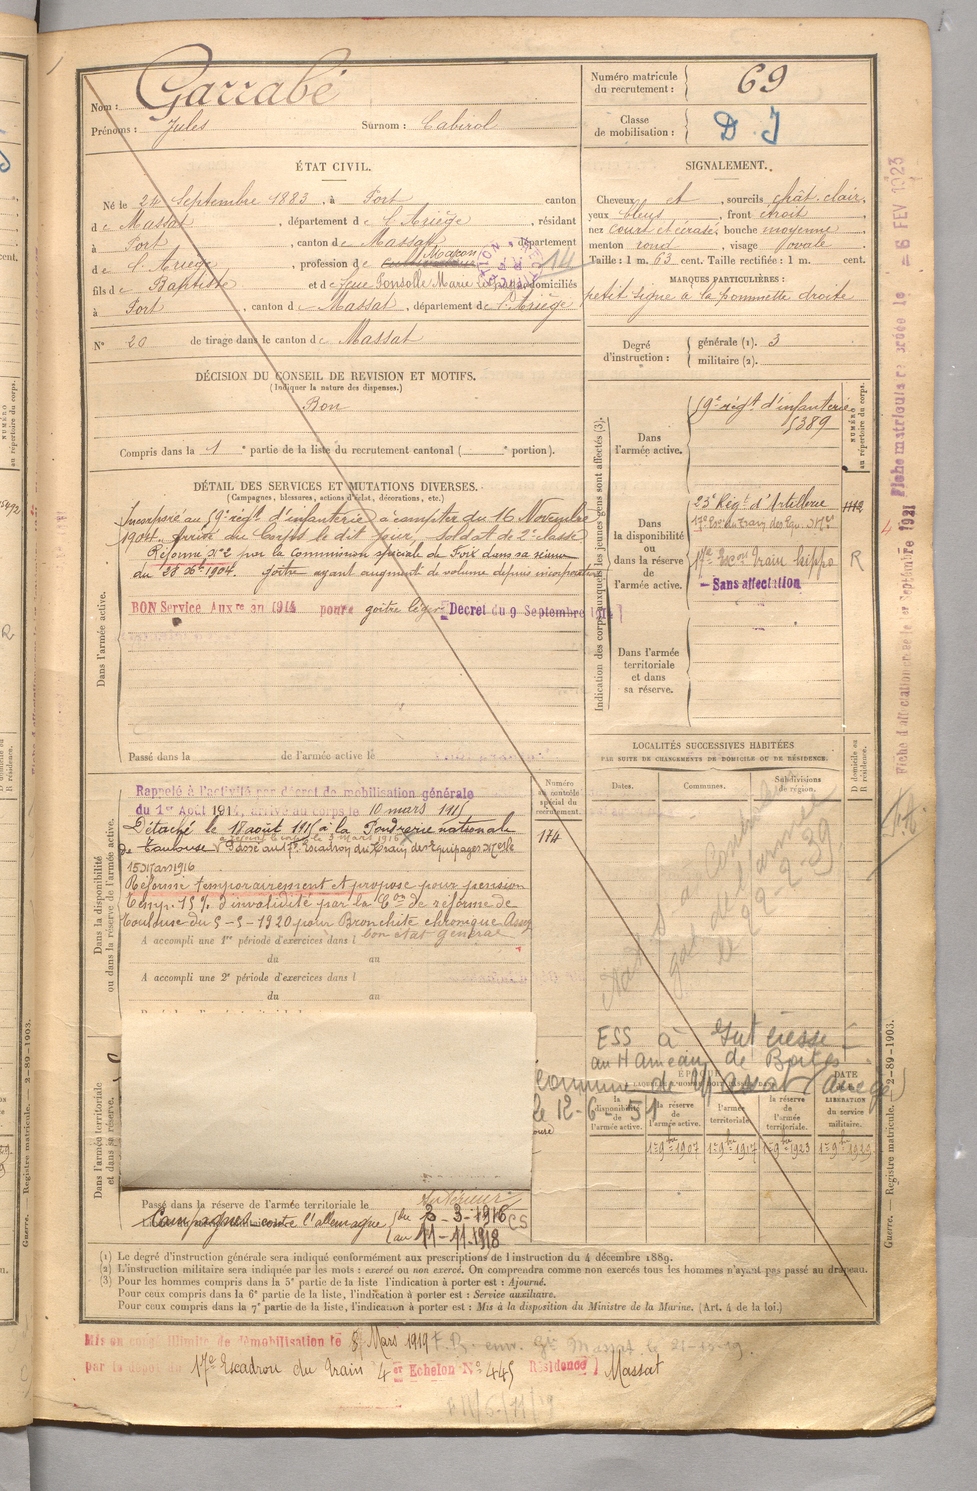 Nom : Garrabé
Prénoms : Jules Surnom : Cabirol
Numéro matricule du recrutement : 69
Classe de mobilisation : D I
ÉTAT CIVIL.
Né le 24 Septembre 1883, à Port canton
de Massat, département de l'Ariège, résidant
à Port, canton de Massat, département
de l'Ariège, profession de Maçon
fils de Baptiste et de feue Marie domiciliés
à Port, canton de Massat, département de l'Ariège
N° 20 de tirage dans le canton de Massat
SIGNALEMENT.
Cheveux et, sourcils chât. clair,
yeux bleus, front étroit
nez court et, bouche moyenne,
menton rond, visage ovale
Taille : 1 m. 63 cent. Taille rectifiée : 1 m. cent.
MARQUES PARTICULIÈRES :
petit signe à la pommette droite
Degré d'instruction : générale (1). 3
militaire (2).
DÉCISION DU CONSEIL DE REVISION ET MOTIFS.
(Indiquer la nature des dispenses.)
Bon
Compris dans la 1e partie de la liste du recrutement cantonal ( e portion).
DÉTAIL DES SERVICES ET MUTATIONS DIVERSES.
(Campagnes, blessures, actions d'éclat, décorations, etc.)
Dans l'armée active.
Incorporé au 59e régt d'infanterie à compter du 16 Novembre
1904. Arrivé au Corps le dit jour, soldat de 2e classe
Réformé N°2 par la Commission spéciale de Foix dans sa séance
du 28 Xbre 1904. goître ayant augmenté de volume depuis incorporation
BON Service Auxre an 1914 pour goître léger Décret du 9 Septembre 1914
Passé dans la de l'armée active le
Indication des corps auxquels les jeunes gens sont affectés (3).
NUMÉRO au répertoire du corps.
Dans l'armée active.
59e régt d'infanterie
5389
Dans la disponibilité ou dans la réserve de l'armée active.
23e Régt d'Artillerie
17e Esc. du Train des Equ. Mres
17e Escon Train hippo R
Sans affectation
Dans l'armée territoriale et dans sa réserve.
LOCALITÉS SUCCESSIVES HABITÉES
PAR SUITE DE CHANGEMENTS DE DOMICILE OU DE RÉSIDENCE.
Dates. Communes. Subdivisions de région.
D domicile ou R résidence.
Dans la disponibilité ou dans la réserve de l'armée active.
Numéro au contrôle spécial du recrutement.
174
Rappelé à l'activité par décret de mobilisation générale
du 1er Août 1914, arrivé au corps le 10 mars 1915
Détaché le 18 août 1915 à la Poudrerie nationale
de Toulouse Passé au 17e Escadron du Train des Equipages Mres le
15 Mars 1916
Réformé temporairement et proposé pour pension
Temp. 15 % d'invalidité par la Con de réforme de
Toulouse du 5-5-1920 pour Bronchite chronique Assez
bon état général
A accompli une 1re période d'exercices dans l
du au
A accompli une 2e période d'exercices dans l
du au
le 22-2-39
ESS à
au Hameau de
Commune de Massat (Ariège)
le 12-6-51
Dans l'armée territoriale et dans sa réserve.
la disponibilité de l'armée active.
la réserve de l'armée active.
l'armée territoriale.
la réserve de l'armée territoriale.
DATE DE LA LIBÉRATION du service militaire.
1er 9bre 1907 1er 9bre 1917 1er 9bre 1923 1er 9bre 1929
Passé dans la réserve de l'armée territoriale le
Campagne contre l'allemagne
Intérieur
du 3-3-1916 CS
au 11-11-1918
(1) Le degré d'instruction générale sera indiqué conformément aux prescriptions de l'instruction du 4 décembre 1889.
(2) L'instruction militaire sera indiquée par les mots : exercé ou non exercé. On comprendra comme non exercés tous les hommes n'ayant pas passé au drapeau.
(3) Pour les hommes compris dans la 5e partie de la liste l'indication à porter est : Ajourné.
Pour ceux compris dans la 6e partie de la liste, l'indication à porter est : Service auxiliaire.
Pour ceux compris dans la 7e partie de la liste, l'indication à porter est : Mis à la disposition du Ministre de la Marine. (Art. 4 de la loi.)
Mis en congé illimité de démobilisation le 8 Mars 1919
par le dépôt du 17e Escadron du Train 4er Echelon N° 445 Résidence) Massat
Guerre. — Registre matricule. 2-89-1903.
Fiche matricule le 6 FEV 1923
Fiche d'affectation le 1er Septembre 1921